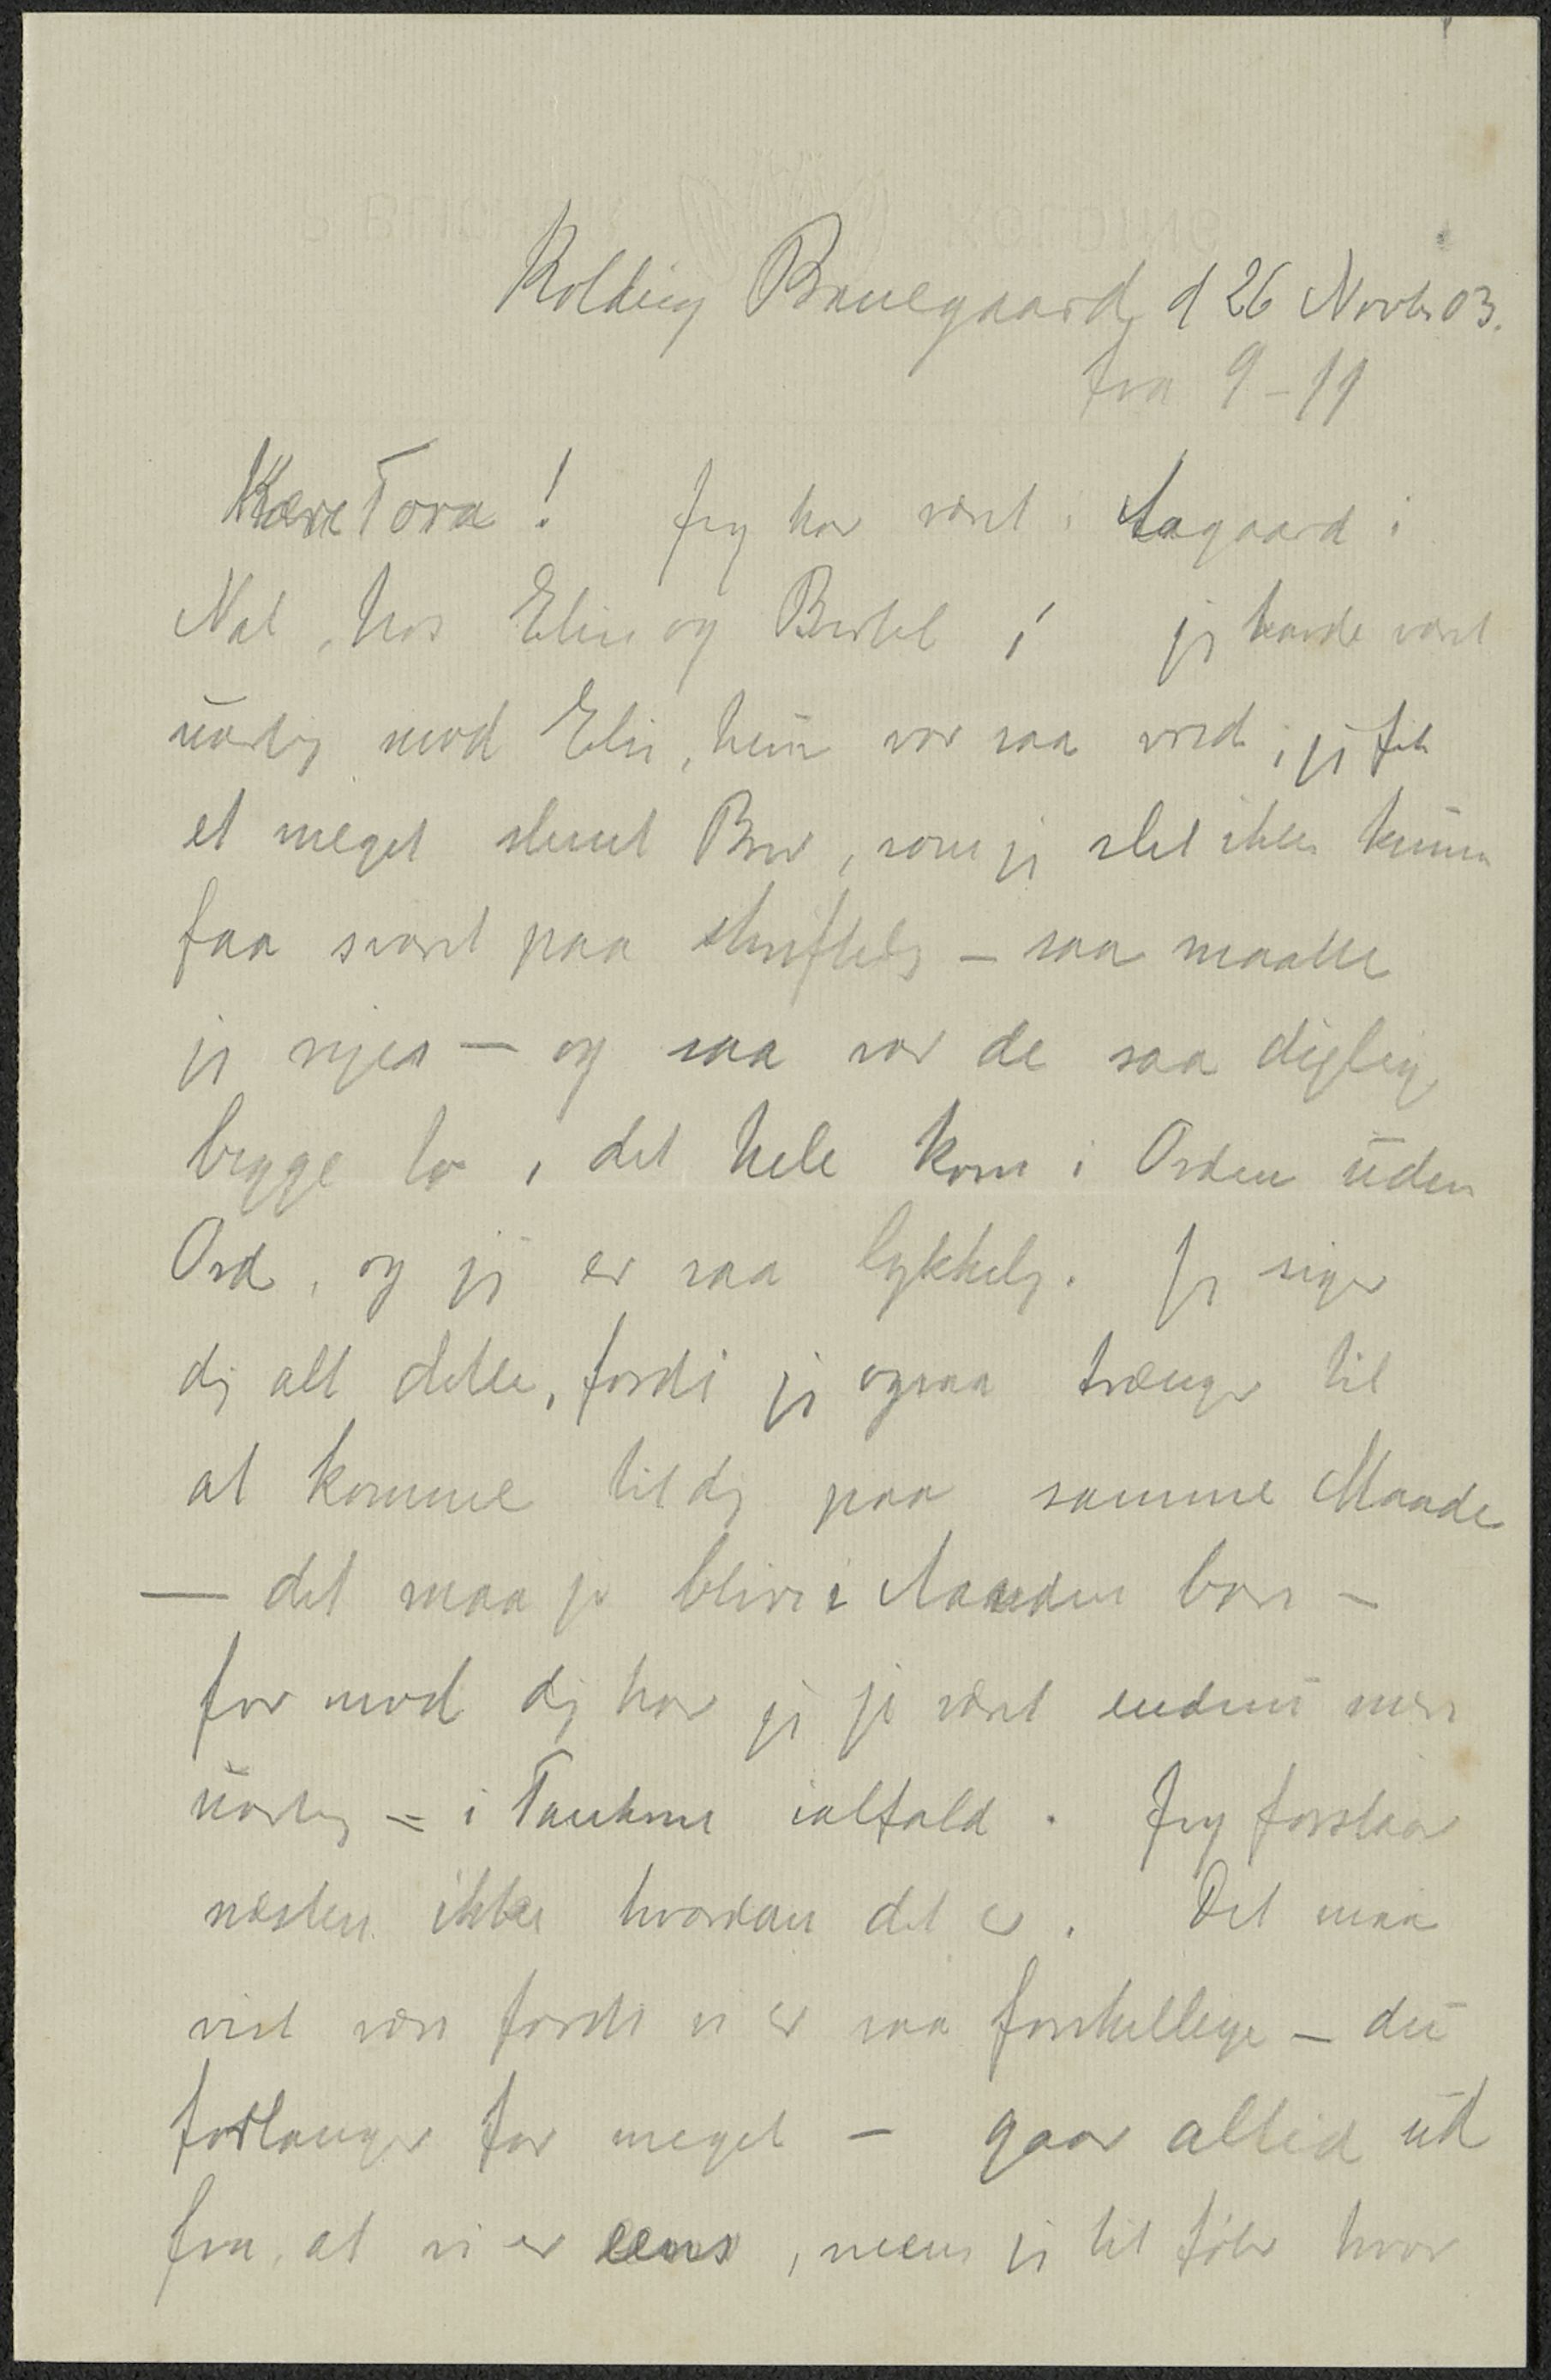 Kolding Banegaard, d 26 Novb 03.
fra 9-11
Kære Tora! Jeg har været i Aagaard i
Nat, hos Elise og Bertel; jeg havde været
uartig mod Elise, hun var saa vred; jeg fik
et meget slemt Brev, som jeg slet ikke kunde
faa svaret paa skriftelig – saa maatte
jeg rejse – og saa var de saa dejlige
begge to, det hele kom i Orden uden
Ord, og jeg er saa lykkelig. Jeg siger
dig alt dette, fordi jeg ogsaa trænger til
at komme til dig paa samme Maade
– det maa jo blive i Aanden bare –
for mod dig har jeg jo været endnu mere
uartig – i Tankerne ialfald. Jeg forstaar
næsten ikke hvordan det er. Det maa
vist være fordi vi er saa forskellige – du
forlanger for meget – gaar altid ud
fra, at vi er eens, mens jeg tit føler hvor